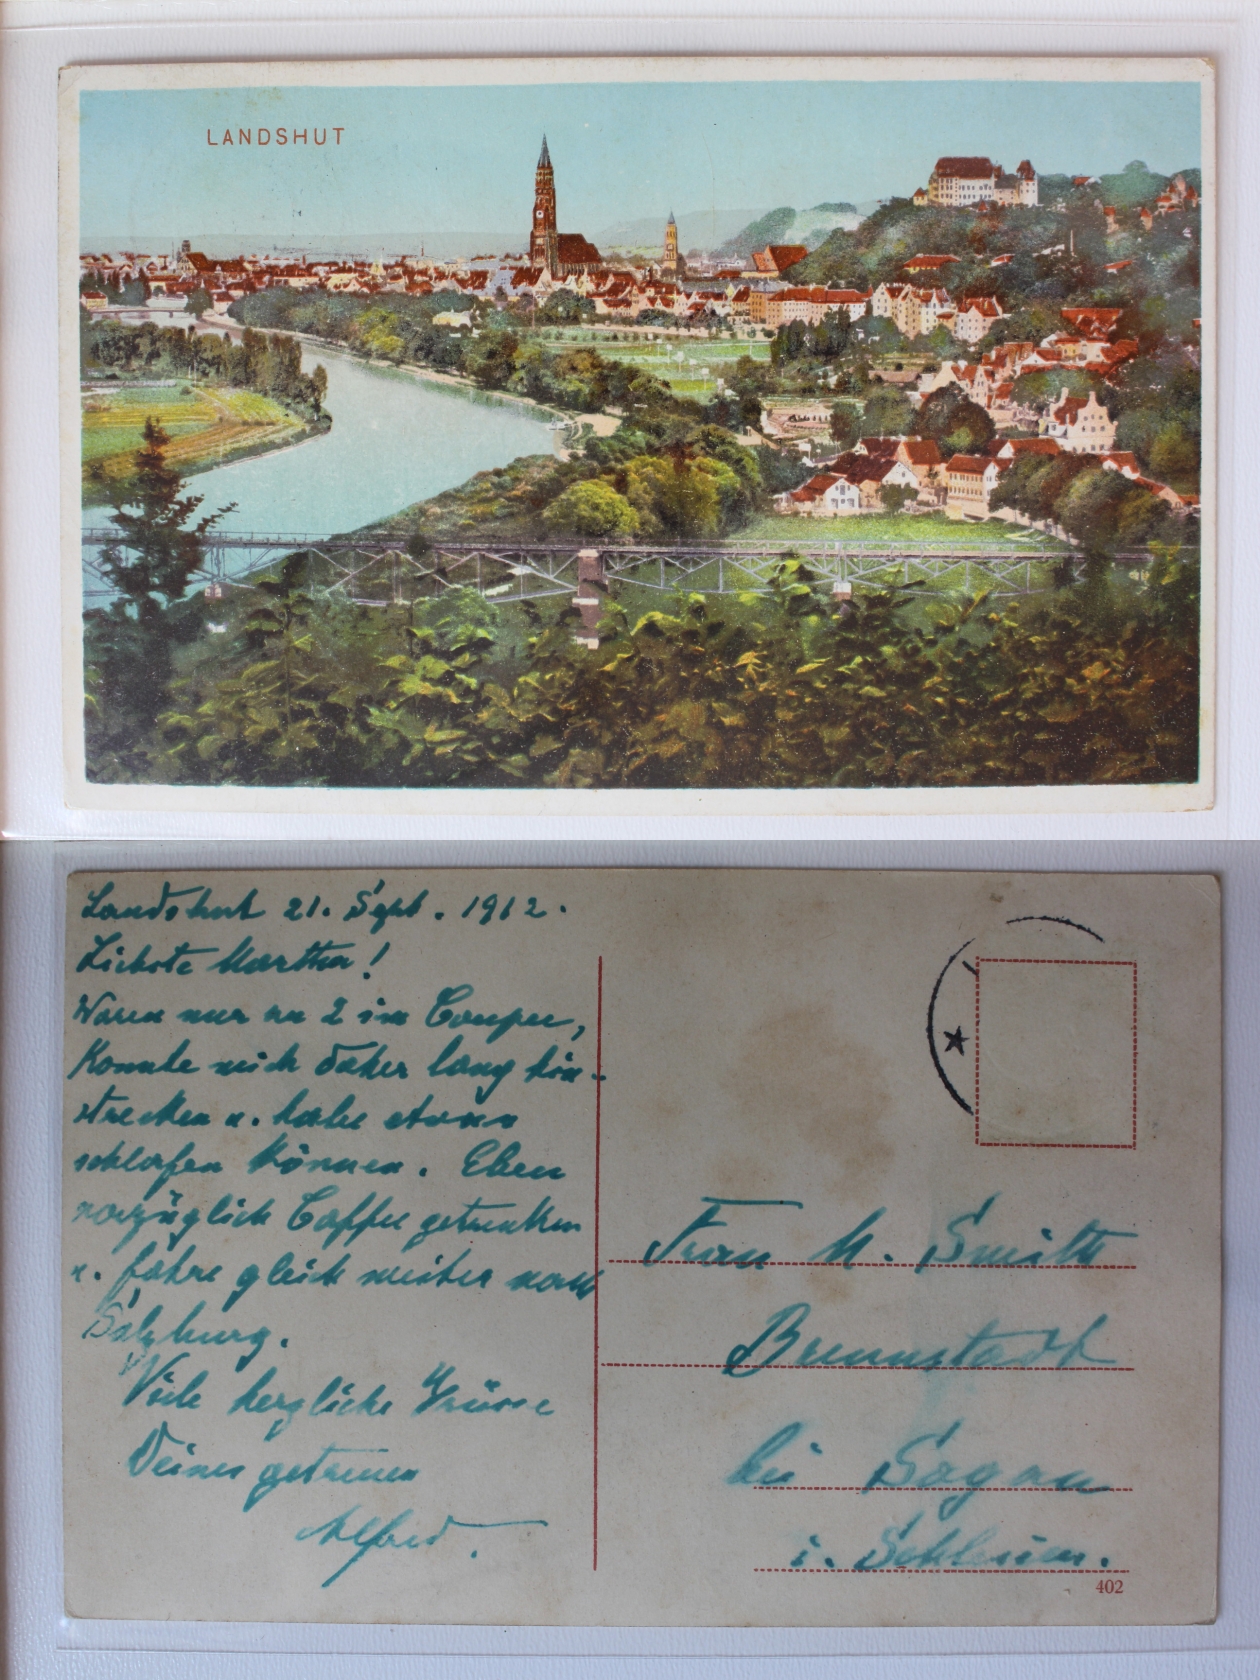 LANDSHUT
Landshut 21. Sept. 1912.
Liebste Martha!
Waren nur zu 2 im Coupee,
Konnte mich daher lang hin-
strecken u. habe etwas
schlafen können. Eben
vorzüglich Caffee getrunken
u. fahre gleich weiter nach
Salzburg.
Viele herzliche Grüsse
Deines getreuen
Alfred.
Frau M. Smith
Brunnstadt
bei Sagan
i. Schlesien.
402